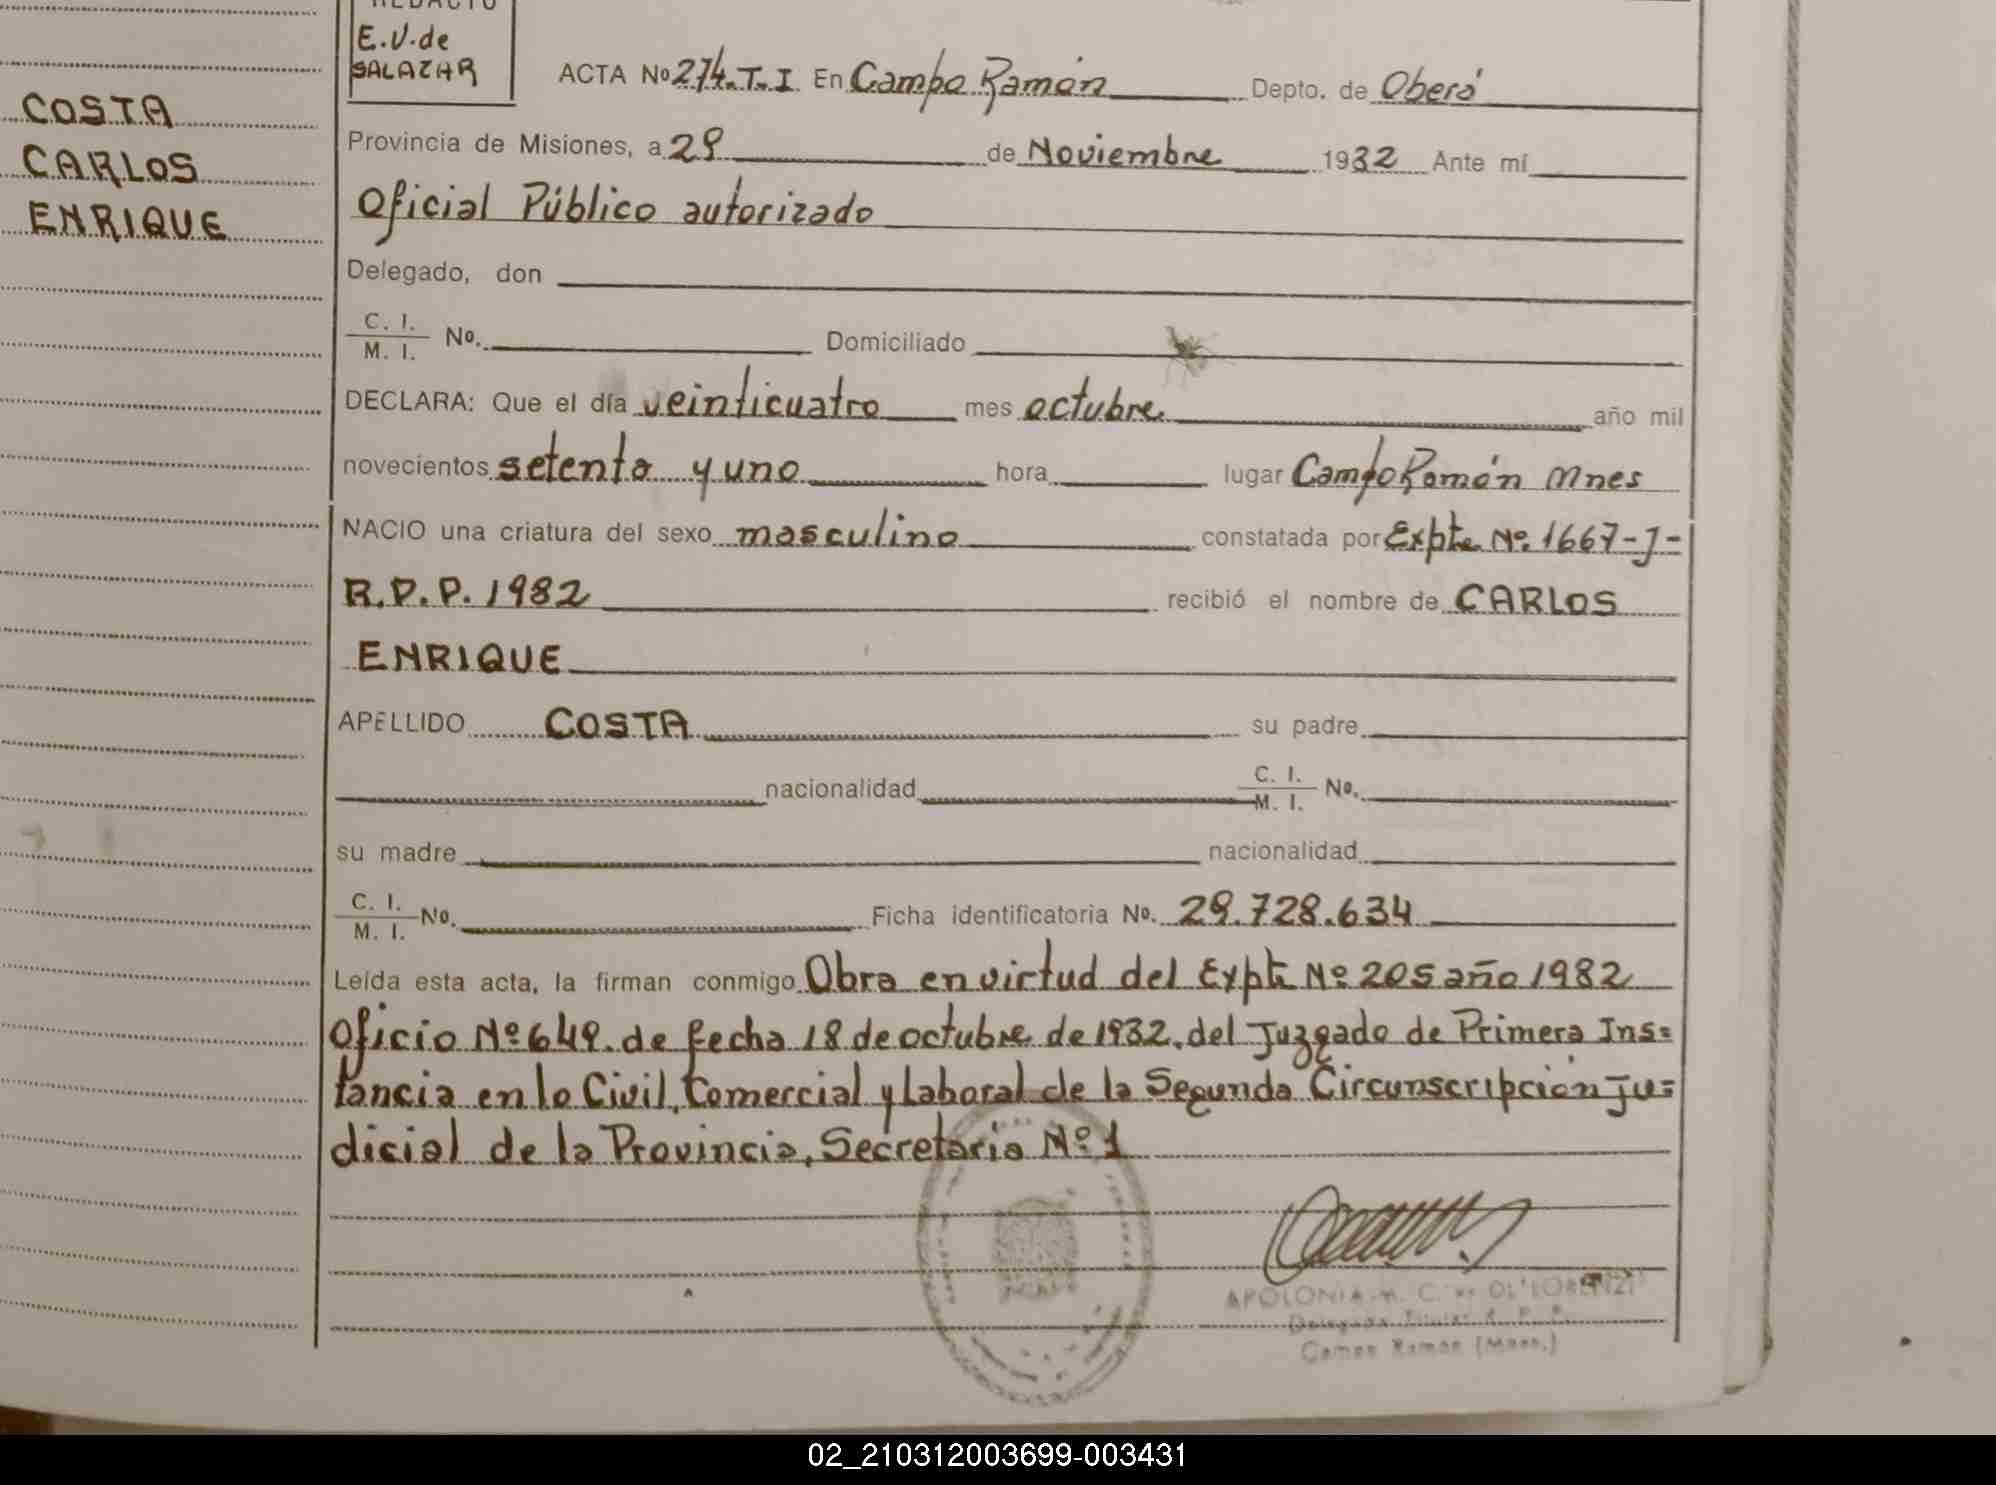 REDACTÓ
E.V. de
SALAZAR
COSTA
CARLOS
ENRIQUE
ACTA Nº 274. T. I. En Campo Ramón Depto. de Oberá
Provincia de Misiones, a 29 de Noviembre 1982 Ante mí
Oficial Público autorizado
Delegado, don
C. I.
M. I. Nº. Domiciliado
DECLARA: Que el día veinticuatro mes octubre año mil
novecientos setenta y uno hora lugar Campo Ramón Mnes
NACIO una criatura del sexo masculino constatada por Expte Nº. 1667-J-
R.P.P. 1982 recibió el nombre de CARLOS
ENRIQUE
APELLIDO COSTA su padre
nacionalidad C. I. M. I. Nº.
su madre nacionalidad
C. I.
M. I. Nº. Ficha identificatoria Nº. 29.728.634
Leída esta acta, la firman conmigo Obra en virtud del Expte Nº 205 año 1982
Oficio Nº 649. de fecha 18 de octubre de 1982, del Juzgado de Primera Ins=
tancia en lo Civil, Comercial y Laboral de la Segunda Circunscripción Ju=
dicial de la Provincia, Secretaria Nº 1
APOLONIA M. C. DE OL
Delegada Titular R. P. P.
Campo Ramón (Mnes.)
02_210312003699-003431